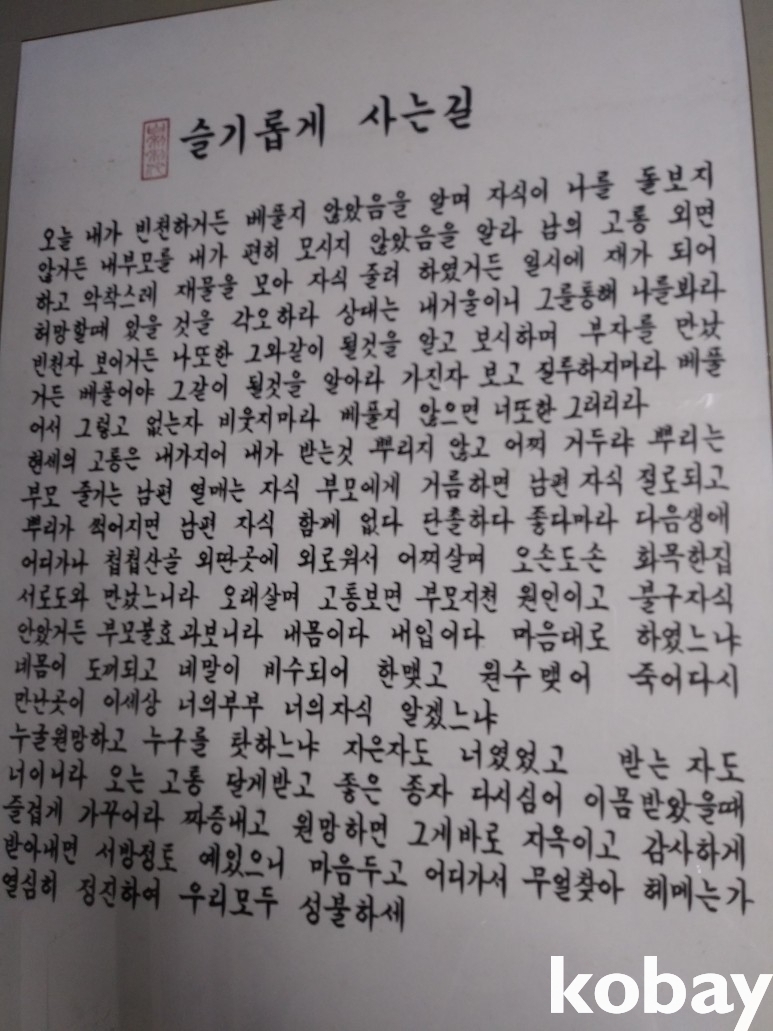 슬기롭게 사는길
오늘 내가 빈천하거든 베풀지 않았음을 알며 자식이 나를 돌보지
않거든 내부모를 내가 편히 모시지 않았음을 알라 남의 고통 외면
하고 악착스레 재물을 모아 자식 줄려 하였거든 일시에 재가 되어
허망할때 있을 것을 각오하라 상대는 내거울이니 그를통해 나를봐라
빈천자 보이거든 나또한 그와같이 될것을 알고 보시하며 부자를 만났
거든 베풀어야 그같이 될것을 알아라 가진자 보고 질투하지마라 베풀
어서 그렇고 없는자 비웃지마라 베풀지 않으면 너또한 그러리라
현세의 고통은 내가지어 내가 받는것 뿌리지 않고 어찌 거두랴 뿌리는
부모 줄기는 남편 열매는 자식 부모에게 거름하면 남편 자식 절로되고
뿌리가 썩어지면 남편 자식 함께 없다 단촐하다 좋다마라 다음생에
어디가나 첩첩산골 외딴곳에 외로워서 어찌살며 오손도손 화목한집
서로도와 만났느니라 오래살며 고통보면 부모지천 원인이고 불구자식
안았거든 부모불효과보니라 내몸이다 내입이다 마음대로 하였느냐
네몸이 도끼되고 네말이 비수되어 한맺고 원수맺어 죽어다시
만난곳이 이세상 너의부부 너의자식 알겠느냐
누굴원망하고 누구를 탓하느냐 지은자도 너였었고 받는 자도
너이니라 오는 고통 달게받고 좋은 종자 다시심어 이몸받았을때
즐겁게 가꾸어라 짜증내고 원망하면 그게바로 지옥이고 감사하게
받아내면 서방정토 예있으니 마음두고 어디가서 무얼찾아 헤메는가
열심히 정진하여 우리모두 성불하세
kobay